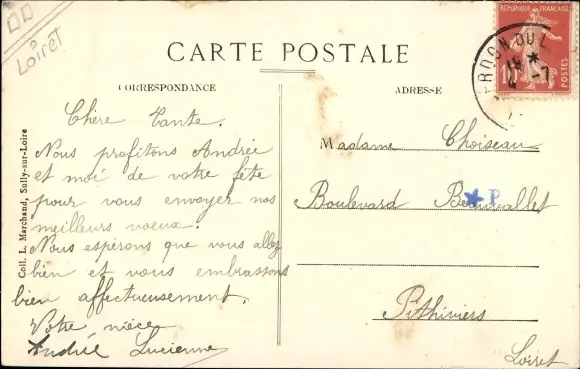 Loiret
RÉPUBLIQUE FRANÇAISE
10
POSTES
CARTE POSTALE
CORRESPONDANCE
ADRESSE
Chère Tante.
Nous profitons Andrée
et moi de votre fête
pour vous envoyer nos
meilleurs voeux.
Nous espérons que vous allez
bien et vous embrassons
bien affectueusement.
Votre nièce
Andrée Lucienne
Madame Choiseau
Boulevard Beauvallet
P
Pithiviers
Loiret
Coll. L. Marchand, Sully-sur-Loire